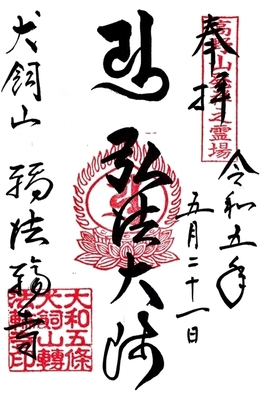 奉拝
高野山発祥之霊場
令和五年
五月二十一日
弘法大師
犬飼山
転法輪寺
大和五條
犬飼山轉
法輪寺印